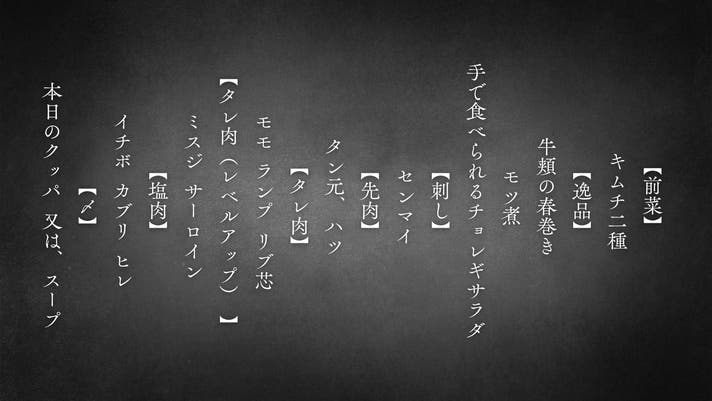 【前菜】
キムチ二種
【逸品】
牛頬の春巻き
モツ煮
手で食べられるチョレギサラダ
【刺し】
センマイ
【先肉】
タン元、ハツ
【タレ肉】
モモ ランプ リブ芯
【タレ肉(レベルアップ)】
ミスジ サーロイン
【塩肉】
イチボ カブリ ヒレ
【〆】
本日のクッパ 又は、スープ